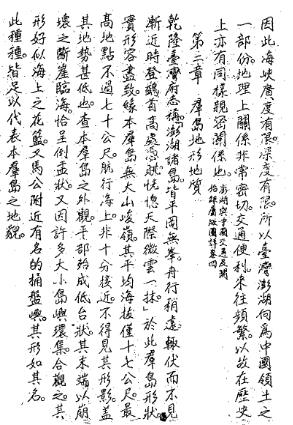 因此海峽廣度有限。深度有限。所以臺灣澎湖向為中國領土之
一部份。地理上關係非常密切。交通便利。來往頻繁。以故在歷史
上亦有同樣親密關係也。
第三章 羣島地形地質
乾隆臺灣府志稱「澎湖諸島皆平岡無峯。舟行稍遠。輒伏而不見
漸近時登鷁首高處。恍惚天際微雲一抹」。於此羣島形狀
實形容盡致。緣本羣島無大山峻嶺。其平均海拔僅十七公尺。最
高地點不過七十公尺。航行海上。非十分接近。不得見其形影。蓋
其地勢甚低也。查本羣島之外觀。平部殆成低台狀。其末端以崩
壞之斷崖臨海。恰呈倒盂狀。又因許多大小島嶼環集合觀之。其
形好似海上之花籃。又馬公附近有名的桶盤嶼。其形如其名。
此種種皆足以代表本羣島之地貌。